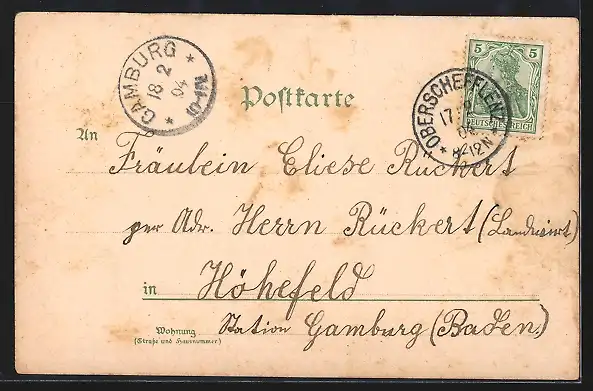 GAMBURG
18 2
04
5 5
DEUTSCHES REICH
OBERSCHEFFLENZ
17
04
8-12N
Postkarte
An
Fräulein Eliese Rückert
per Adr. Herrn Rückert (Landwirt)
in Höhefeld
Wohnung
(Straße und Hausnummer)
Station Gamburg (Baden.)